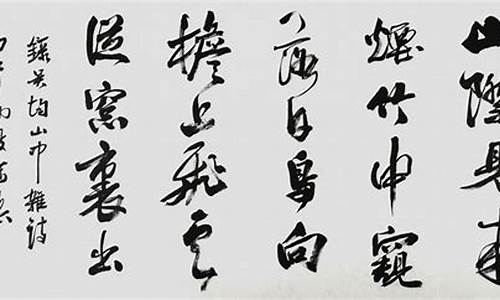 山際見來
煙竹中窺
落日鳥向
檐上飛云
從窗裏出
錄吴均山中雜詩